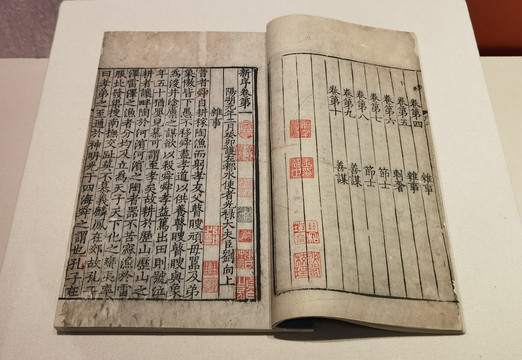 卷第四　雜事
卷第五　雜事
卷第六　刺奢
卷第七　節士
卷第八　節士
卷第九　善謀
卷第十　善謀
新序卷第一
陽朔元年二月癸卯護左都水使者光祿大夫臣劉向上
雜事
昔者舜自耕稼陶漁而躬孝友父瞽瞍頑母嚚及弟
象傲皆下愚不移舜盡孝道以供養瞽瞍瞽瞍與象
為浚井塗廩之謀欲以殺舜舜孝益篤出田則號泣
年五十猶嬰兒慕可謂至孝矣故耕於歷山歷山之
耕者讓畔陶於河濱河濱之陶者器不苦窳漁於雷
澤雷澤之漁者分均及立為天子天下化之蠻夷率
服北發渠搜南撫交阯莫不慕義麟鳳在郊故孔子
曰孝弟之至通於神明光于四海舜之謂也孔子在